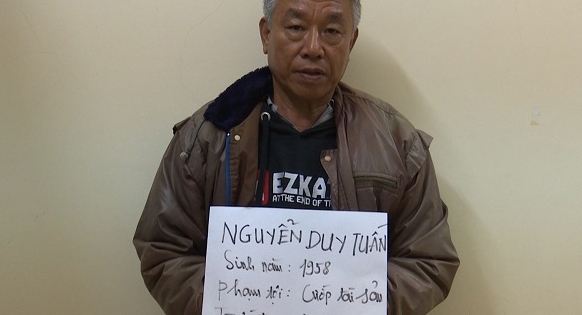 EZKA
AT THE END OF T
NGUYỄN DUY TUẤN
Sinh năm : 1958
phạm tội : Cướp tài sản